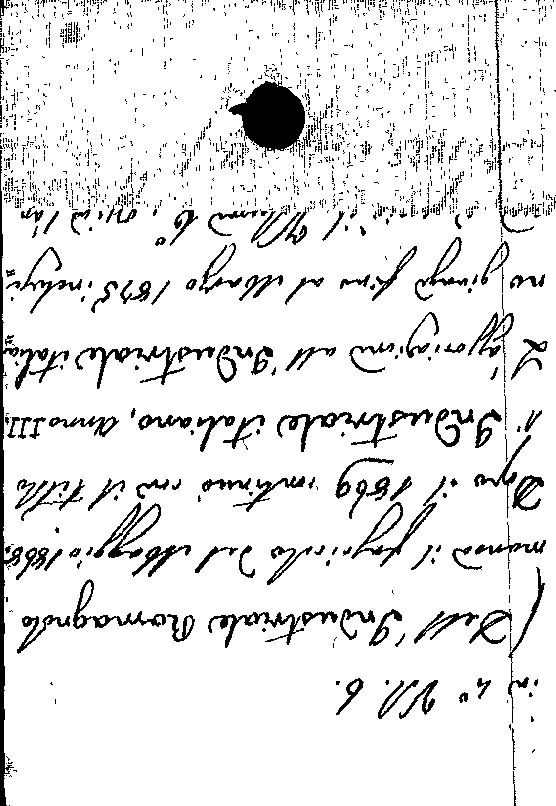 in 4° Vol. 6.
(Dell'Industriale Romagnolo
manca il fascicolo del Maggio 1868.
Dopo il 1869 continuò con il titolo
l'Industriale italiano, Anno III.
L'associazione all'Industriale italia=
no giunge fino al Marzo 1875 inclusi=
il Volume 6°, ossia l'an